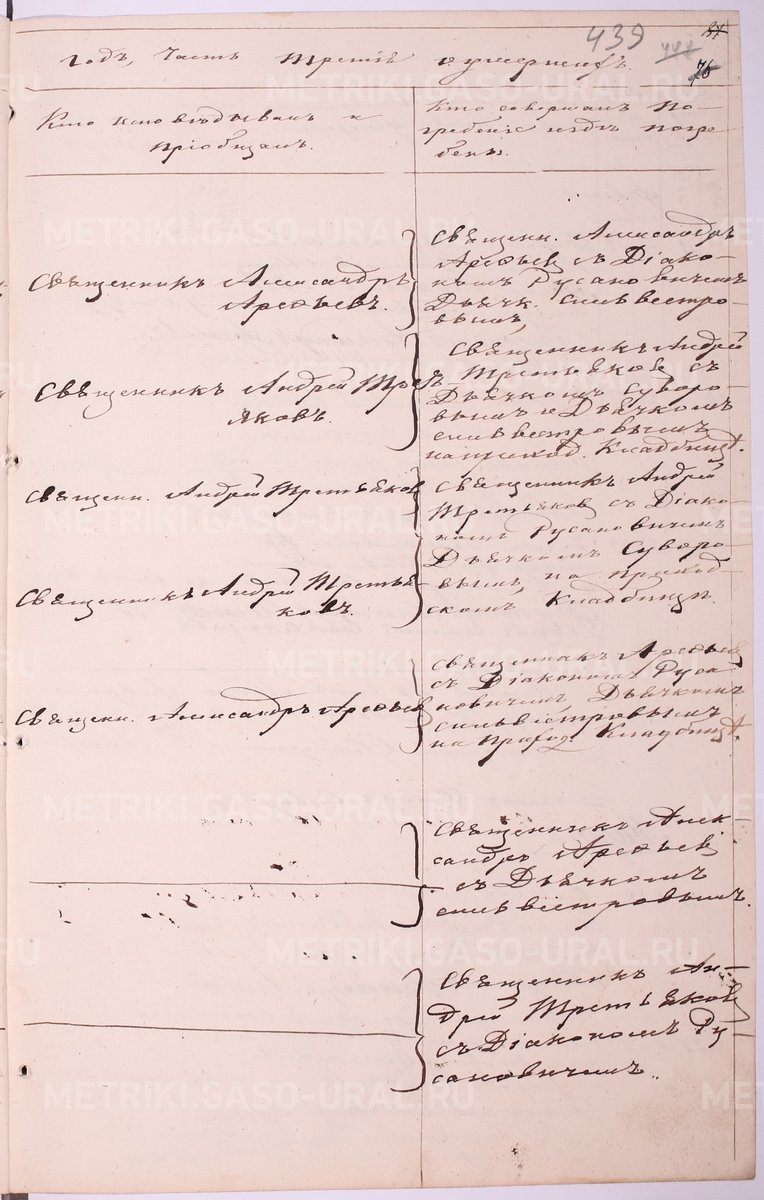 439
годъ, Часть третiя о умершихъ.
76
Кто исповѣдывалъ и
прiобщалъ.
Кто совершалъ по-
гребенiе и гдѣ погре-
бены.
Священникъ Александръ
Арефьевъ.
Священн. Александръ
Арефьев съ Дiако-
номъ Русановичемъ
Дьячк. Сильвестро-
вымъ
Священникъ Андрей Трет
яковъ.
Священникъ Андрей
Третьяков съ
Дьячкомъ Суворо-
вымъ и Дьячкомъ
Сильвестровымъ
на приход. Кладбищѣ.
Священн. Андрей Третьяков
Священникъ Андрей
Третьяков съ Дiако-
номъ Русановичем
Дьячкомъ Суворо-
вымъ, на приход-
скомъ Кладбищѣ.
Священникъ Андрей Третья-
ковъ.
Священн. Александръ Арефьев
Священникъ Арефьев
съ Дiакономъ Руса
новичемъ Дьячкомъ
Сильвестровымъ
на Приход. Кладбищѣ.
Священникъ Алек-
сандръ Арефьев
съ Дьячкомъ
Сильвестровымъ.
Священникъ Ан-
дрей Третьяков
съ Дiакономъ Ру-
сановичемъ.
METRIKI.GASO-URAL.RU